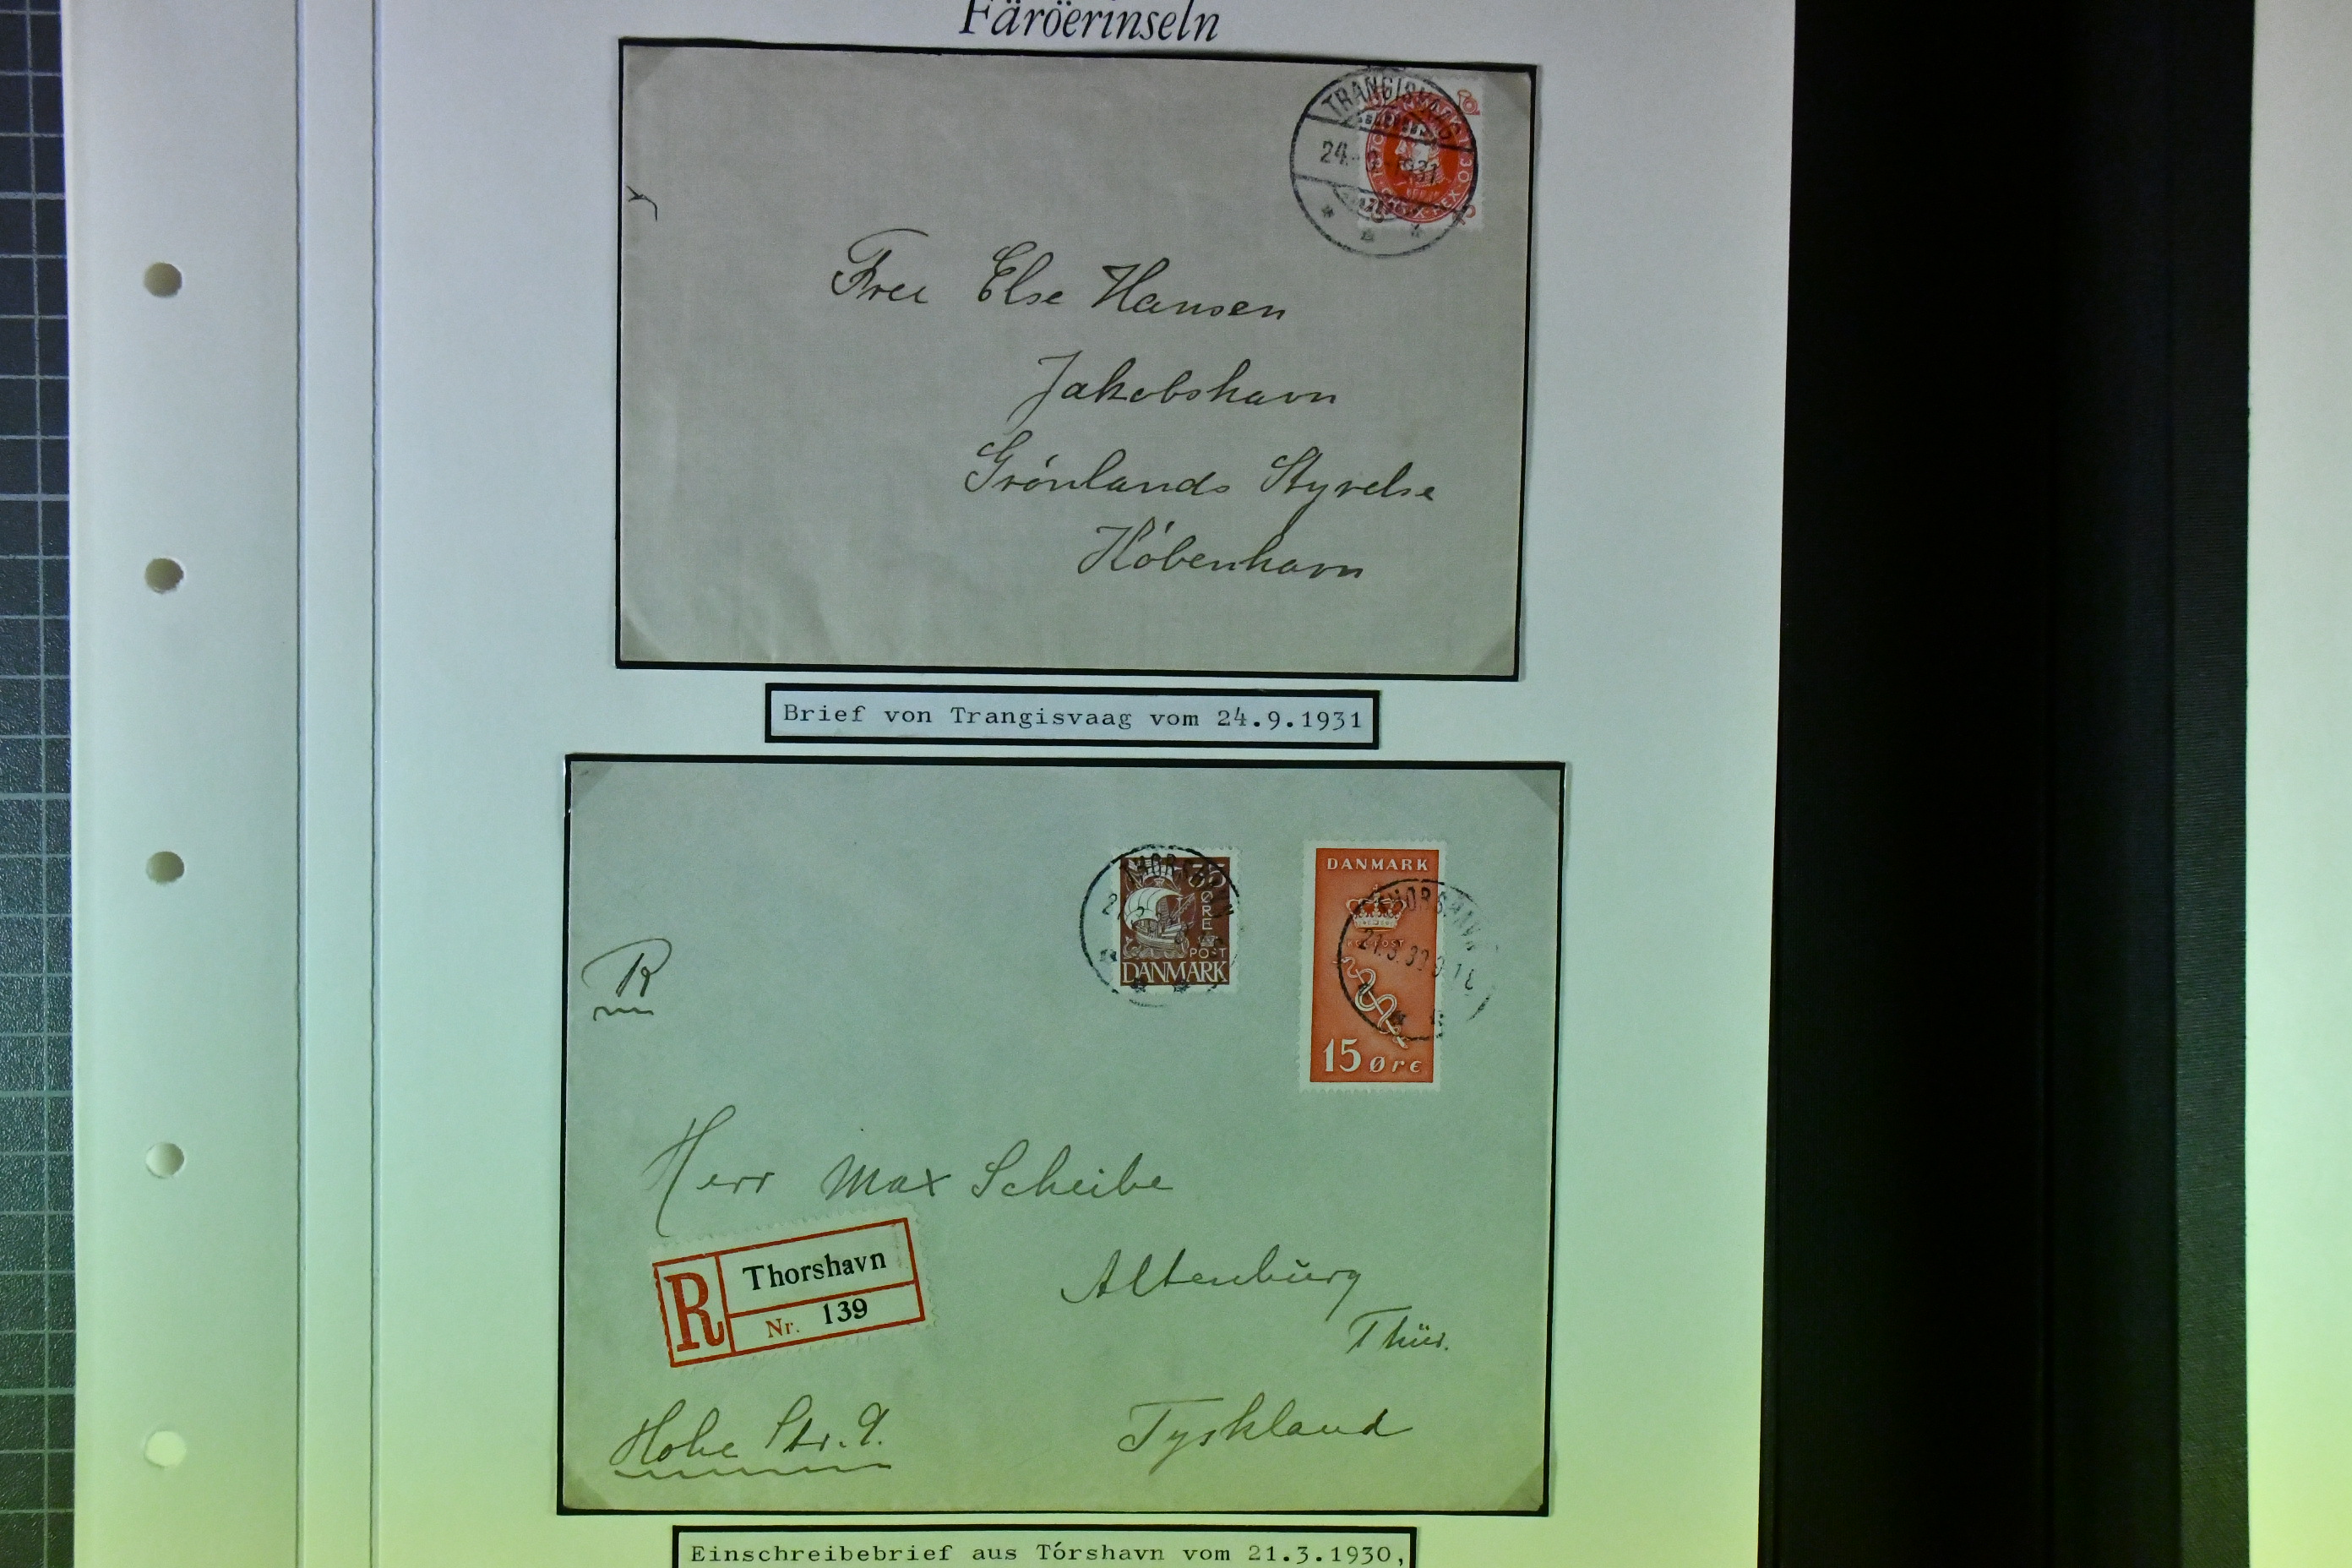 Färöerinseln
TRANGISVAAG
24.
1931
Frei Else Hansen
Jakobshavn
Grónlands Styrelse
Kóbenhavn
Brief von Trangisvaag vom 24.9.1931
THORSHAVN
ØRE
POST
DANMARK
DANMARK
THORSHAVN
21.3.30
15 ØRE
R
Herr Max Scheibe
R Thorshavn
Nr. 139
Altenburg
Thür.
Hohe Str. 9.
Tyskland
Einschreibebrief aus Tórshavn vom 21.3.1930,